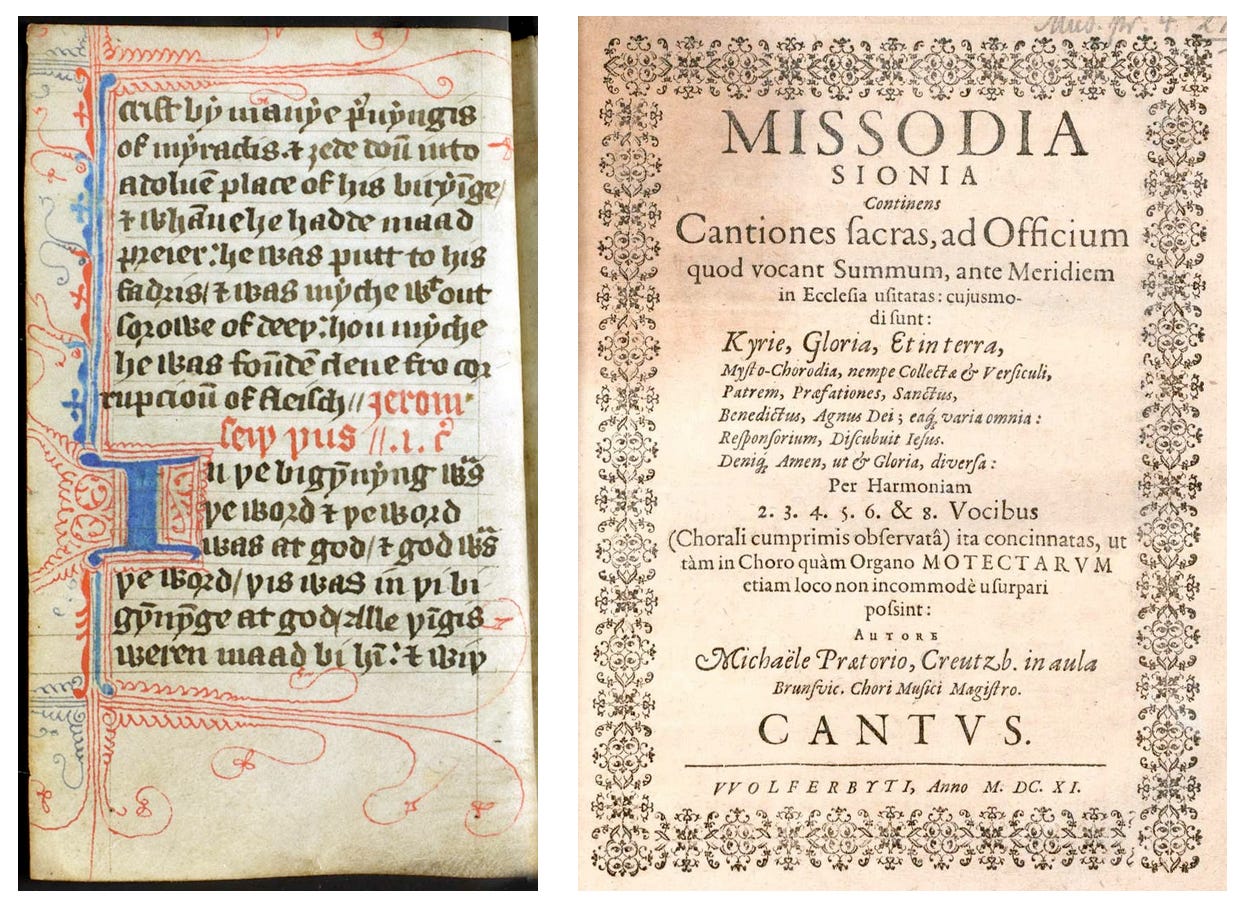 crist bi manye p̃uyngis
of myraclis. ⁊ ȝede doũ into
a doluẽ place of his biryĩge/
⁊ whãne he hadde maad
preier: he was putt to his
fadris/ ⁊ was myche wͭout
sorowe of deeþ: hou myche
he was foũdẽ clene fro cor
rupcioũ of fleisch// Jerom
seiþ þus //.i. c̃
In þe bigyñyng was
þe word ⁊ þe word
was at god/ ⁊ god was
þe word/ þis was in þi bi
gyñynge at god/ Alle þĩgis
weren maad bi hĩ: ⁊ wiþ
Mus. pr. 4.
MISSODIA
SIONIA
Continens
Cantiones ſacras, ad Officium
quod vocant Summum, ante Meridiem
in Eccleſia uſitatas: cujusmo-
di ſunt:
Kyrie, Gloria, Et in terra,
Myſto-Chorodia, nempe Collectæ & Verſiculi,
Patrem, Præfationes, Sanctus,
Benedictus, Agnus Dei; eaq́; varia omnia:
Reſponſorium, Diſcubuit Ieſus.
Deniq́; Amen, ut & Gloria, diverſa:
Per Harmoniam
2. 3. 4. 5. 6. & 8. Vocibus
(Chorali cumprimis obſervatâ) ita concinnatas, ut
tàm in Choro quàm Organo MOTECTARVM
etiam loco non incommodè uſurpari
poſſint:
AUTORE
Michaële Prætorio, Creutzb. in aula
Brunſvic. Chori Muſici Magiſtro.
CANTVS.
VVOLFERBYTI, Anno M. DC. XI.